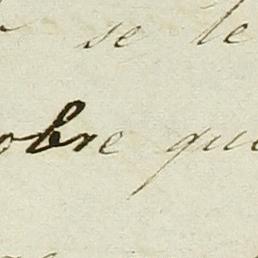 se le
obre que